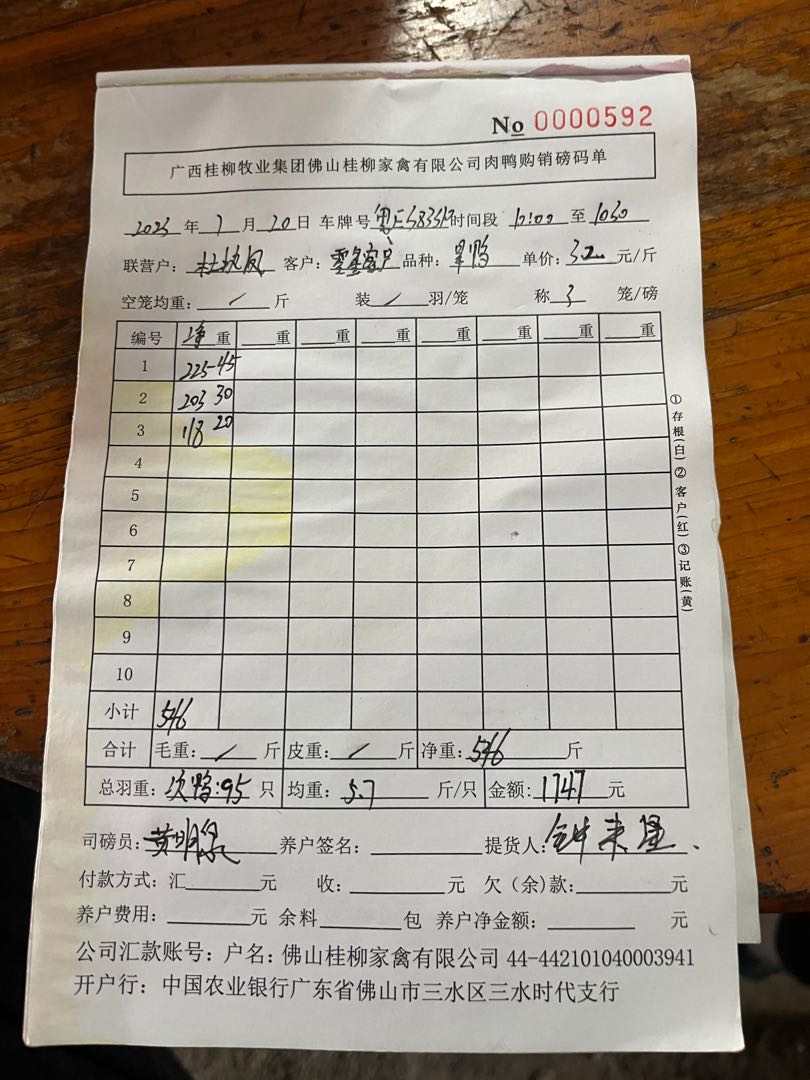 No 0000592
广西桂柳牧业集团佛山桂柳家禽有限公司肉鸭购销磅码单
2023 年 7 月 20 日 车牌号 时间段 10:00 至 1030
联营户: 杜 凤 客户: 零星客户 品种: 单价: 3.2 元/斤
空笼均重: / 斤 装 / 羽/笼 称 3 笼/磅
编号 净重 重 重 重 重 重 重 重
1 225-45
2 203 30
3 118 20
4
5
6
7
8
9
10
小计 546
合计 毛重: / 斤 皮重: / 斤 净重: 546 斤
总羽重: 次鸭:95 只 均重: 5.7 斤/只 金额: 1747 元
司磅员: 黄明 养户签名: 提货人: 钟来
付款方式: 汇 元 收: 元 欠(余)款: 元
养户费用: 元 余料 包 养户净金额: 元
公司汇款账号: 户名: 佛山桂柳家禽有限公司 44-442101040003941
开户行: 中国农业银行广东省佛山市三水区三水时代支行
①存根(白)②客户(红)③记账(黄)